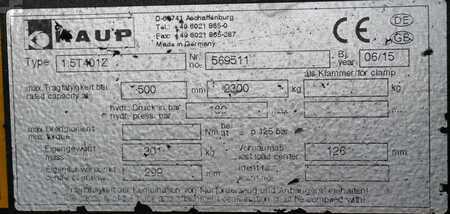 KAUP
D-63741 Aschaffenburg
Tel.: +49 6021 865-0
Fax: +49 6021 865-287
Made in Germany
CE
DE
GB
Type 1.5T401Z
Nr. no. 569511
Bj. year 06/15
als Klammer/for clamp
max. Tragfähigkeit bei
rated capacity at
500 mm 2300 kg kg
hydr. Druck in bar
hydr. press. bar
max. Drehmoment
max. torque
Nm bei at p 125 bar
Eigengewicht
mass
301 kg
Vorbaumaß
lost load center
126 mm
Eigenschwerpunkt
299 mm
Ident-Nr.
Tragfähigkeit der Kombination von Flurförderzeug und Anbaugerät einhalten!